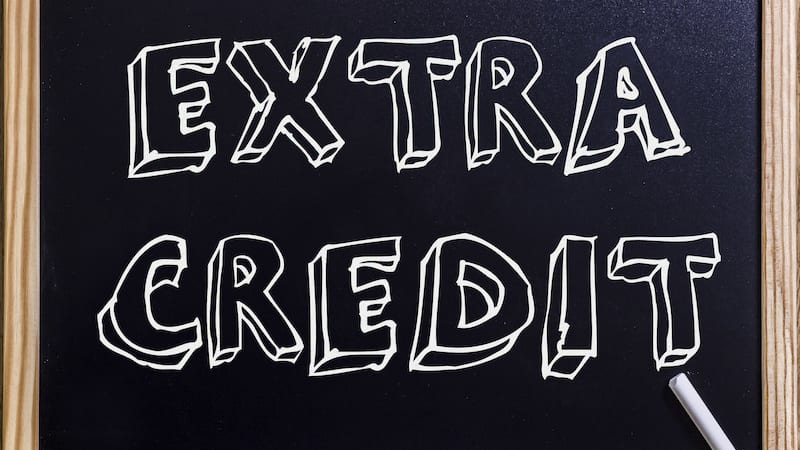 EXTRA
CREDIT